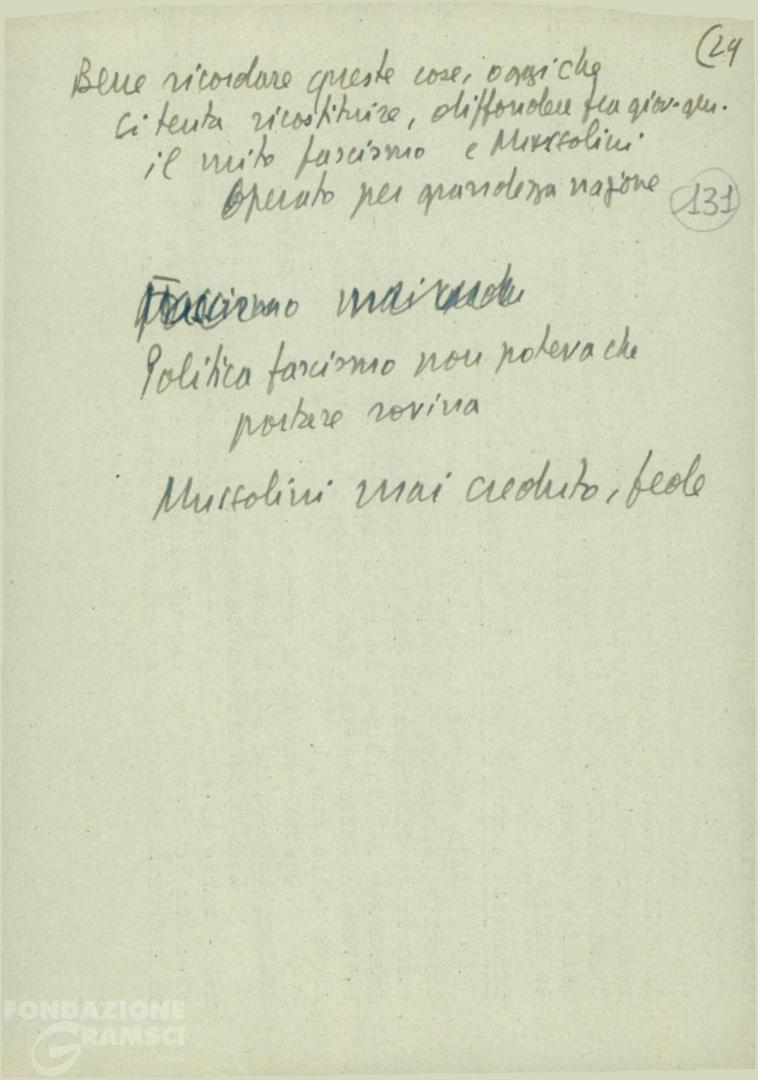 (24
Bene ricordare queste cose, oggi che
si tenta ricostituire, diffondere fra giov. gen.
il mito fascismo e Mussolini
Operato per grandezza nazione
131
Fascismo mai
Politica fascismo non poteva che
portare rovina
Mussolini mai creduto, fede
FONDAZIONE
GRAMSCI
onlus